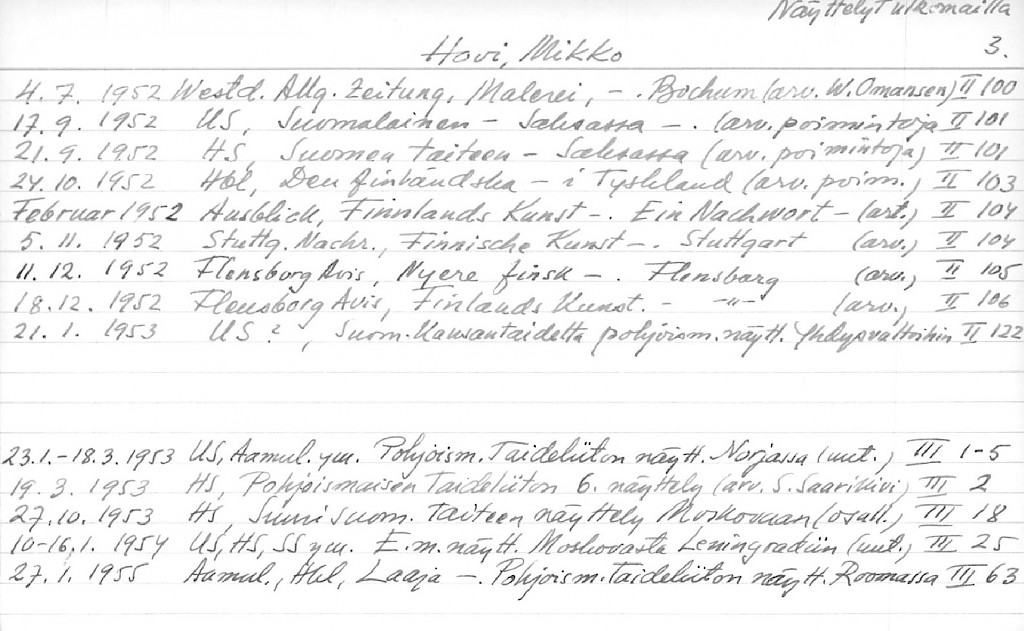 Näyttelyt ulkomailla
3.
Hovi, Mikko
4.7. 1952 Westd. Allg. Zeitung, Malerei, -. Bochum (arv. W. Omansen) II 100
17.9. 1952 US, Suomalainen - Saksassa -. (arv. poimintoja II 101
21.9. 1952 HS, Suomen taiteen - Saksassa (arv. poimintoja) II 101
24.10. 1952 Hbl, Den finländska - i Tyskland (arv. poim.) II 103
Februar 1952 Ausblick, Finnlands Kunst -. Ein Nachwort - (art.) II 104
5. 11. 1952 Stuttg. Nachr., Finnische Kunst -. Stuttgart (arv.) II 104
11. 12. 1952 Flensborg Avis, Nyere finsk -. Flensburg (arv.) II 105
18.12. 1952 Flensborg Avis, Finlands Kunst. - -"- (arv.) II 106
21. 1. 1953 US ?, Suom. Kansantaidetta pohjoism. näytt. Yhdysvaltoihin II 122
23.1.-18.3.1953 US, Aamul. ym. Pohjoism. Taideliiton näytt. Norjassa (uut.) III 1-5
19. 3. 1953 HS, Pohjoismaisen Taideliiton 6. näyttely (arv. S. Saarikivi) III 2
27.10. 1953 HS, Suuri suom. taiteen näyttely Moskovaan (osall.) III 18
10-16.1. 1954 US, HS, SS ym. E.m. näytt. Moskovasta Leningradiin (uut.) III 25
27. 1. 1955 Aamul., Hbl, Laaja -. Pohjoism. Taideliiton näytt. Roomassa III 63